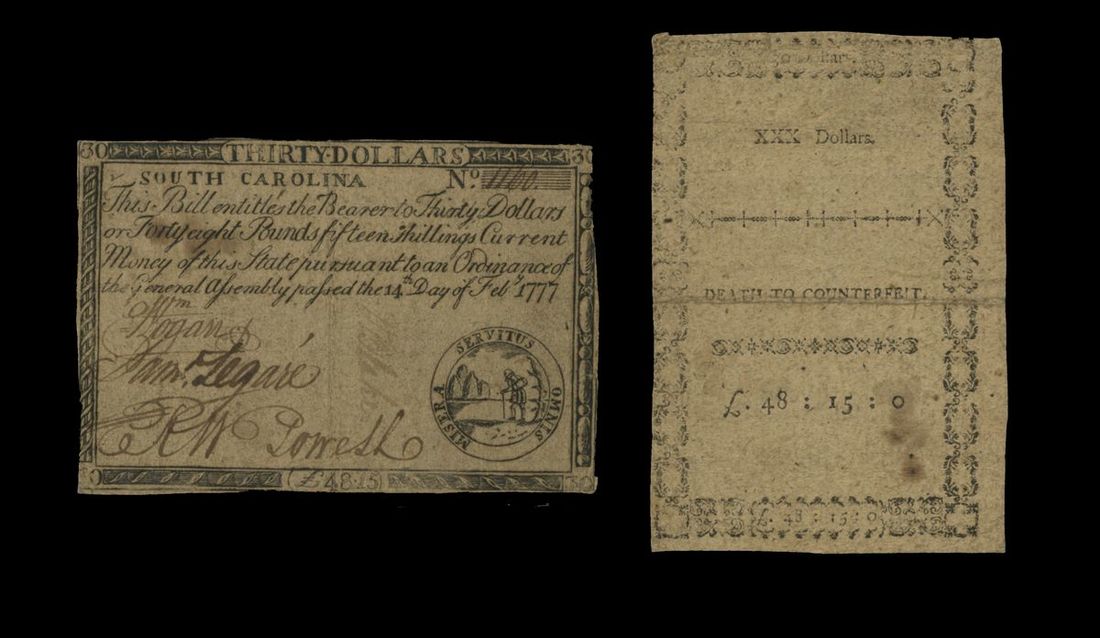 30 THIRTY·DOLLARS 30
SOUTH CAROLINA No. 1160
This Bill entitles the Bearer to Thirty Dollars
or Forty eight Pounds fifteen Shillings Current
Money of this State pursuant to an Ordinance of
the General Assembly passed the 14th Day of Feby 1777
Wm
Logan
Saml. Legaré
RW Powell
MISERA SERVITUS OMNIS
(£48·15) 30
XXX Dollars.
DEATH TO COUNTERFEIT.
£. 48 : 15 : 0
£. 48 : 15 : 0